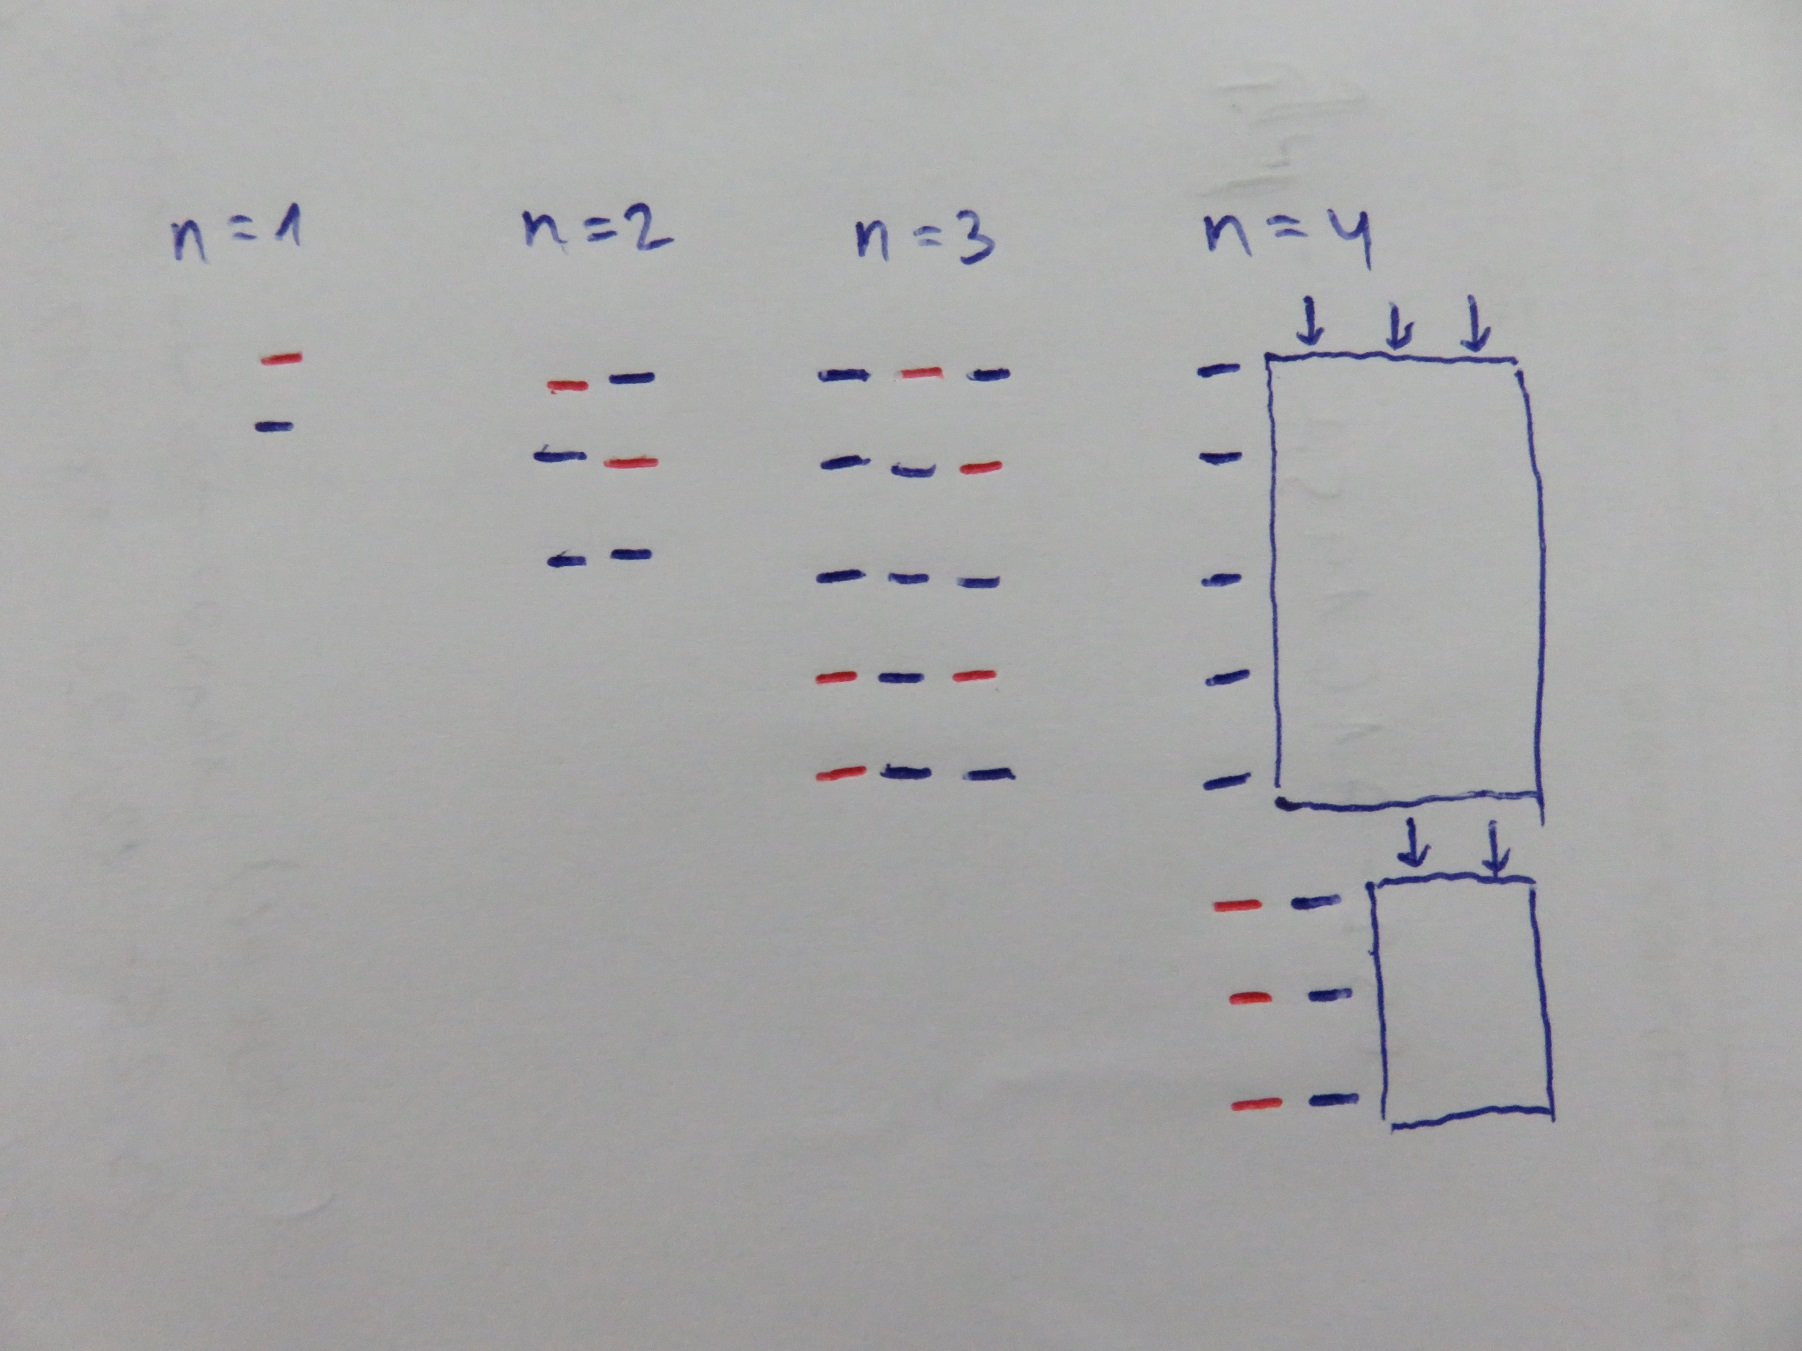 n=1 n=2 n=3 n=4